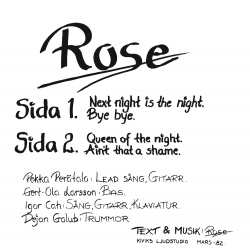 Rose
Sida 1. Next night is the night.
Bye bye.
Sida 2. Queen of the night.
Ain't that a shame.
Pekka Perätalo: LEAD SÅNG, GITARR.
Gert-Ola Larsson: BAS.
Igor Cah: SÅNG, GITARR, KLAVIATUR.
Dejan Golub: TRUMMOR.
TEXT & MUSIK: Rose
KIVIKS LJUDSTUDIO MARS-82.